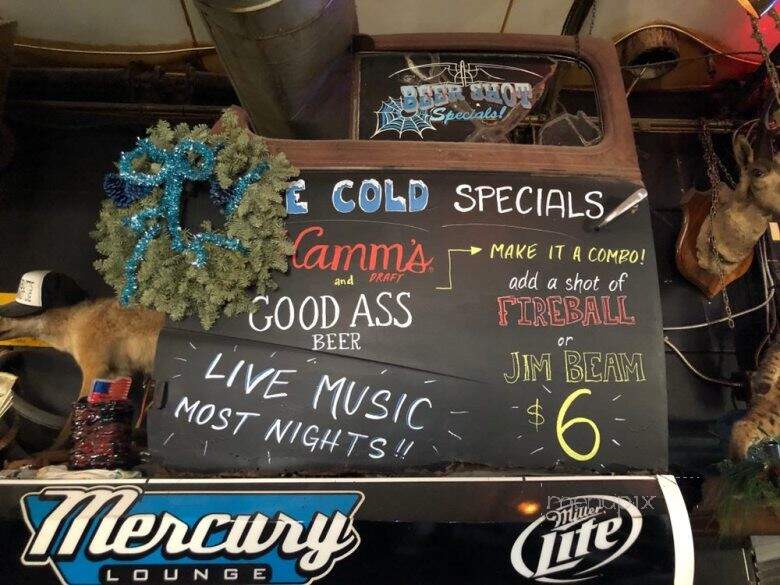 BEER SHOT
Specials!
E COLD SPECIALS
Camm's
DRAFT
and
GOOD ASS
BEER
MAKE IT A COMBO!
add a shot of
FIREBALL
or
JIM BEAM
$6
LIVE MUSIC
MOST NIGHTS!!
menupix
Mercury
LOUNGE
Miller
Lite